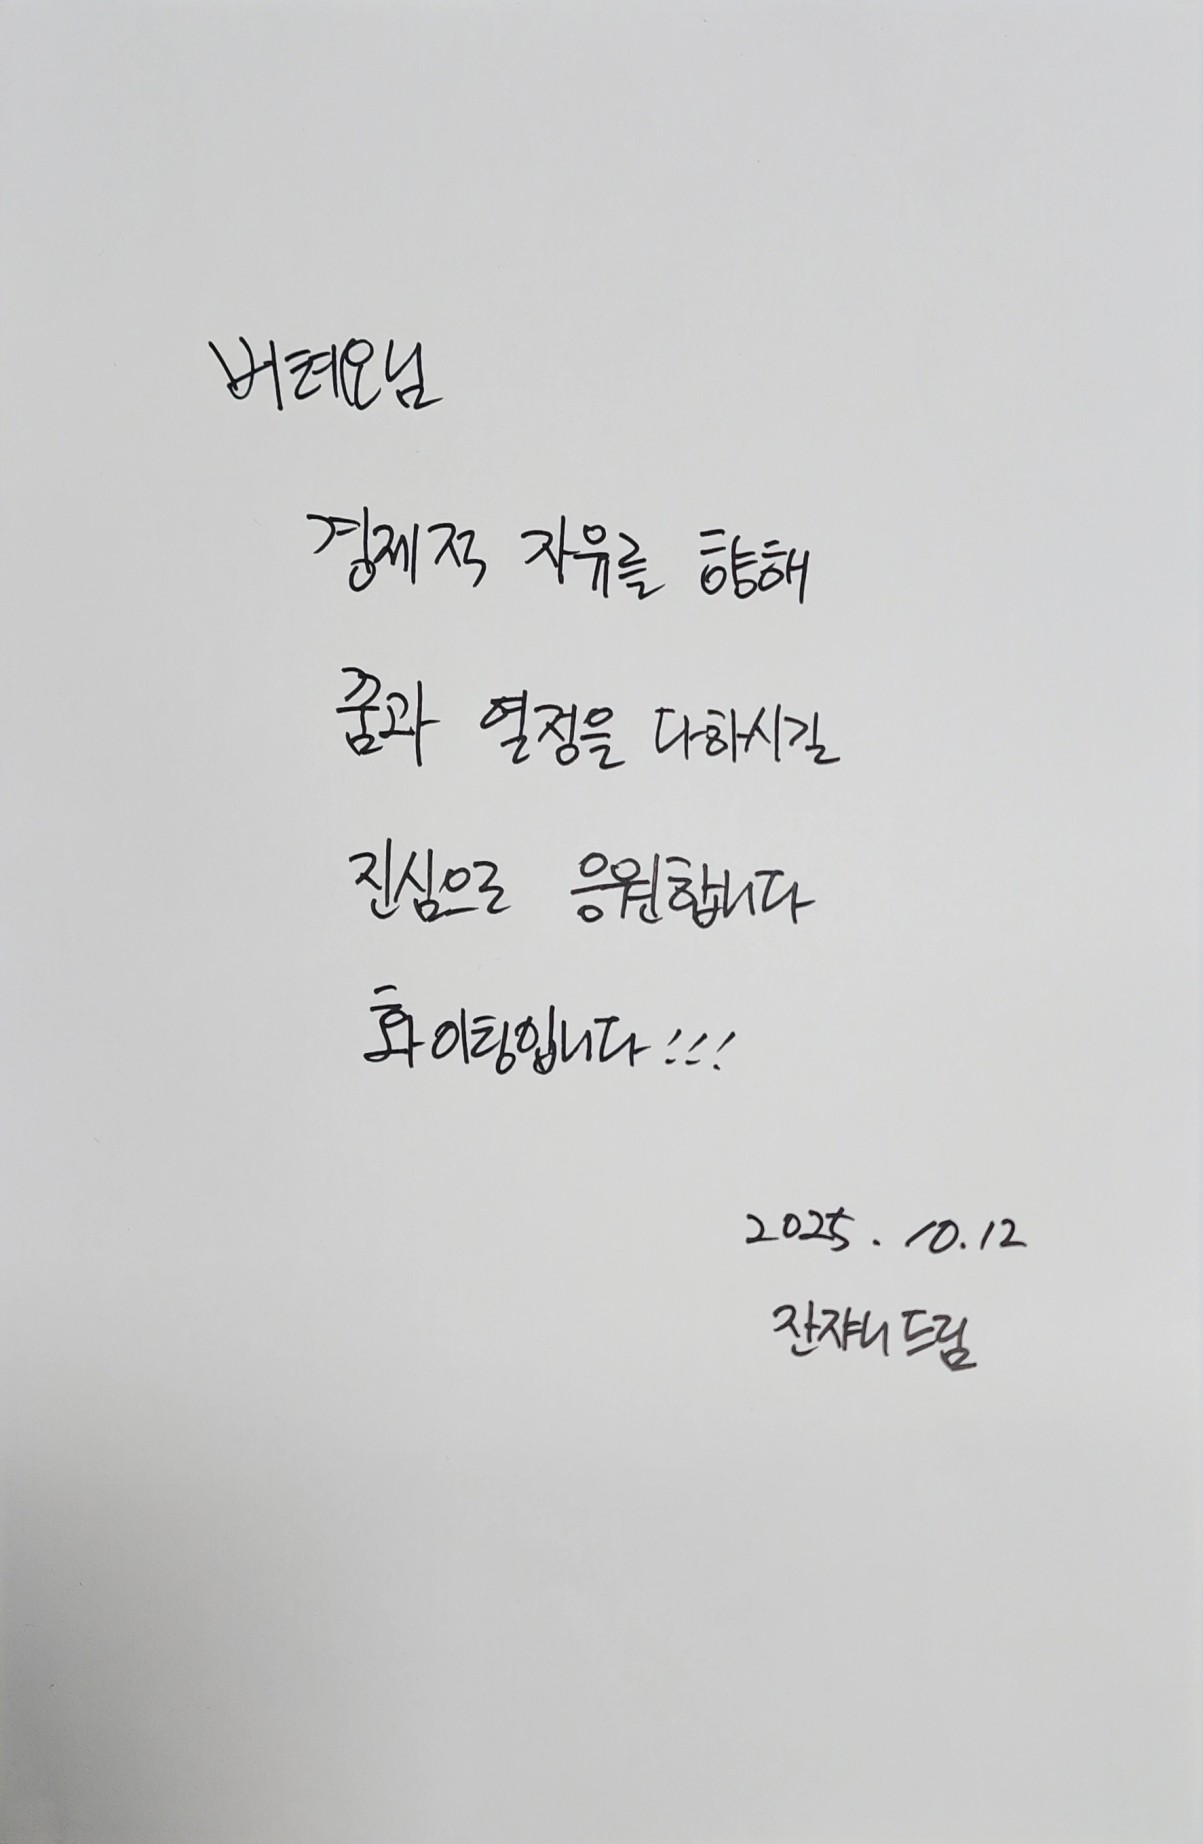 버텨오님
경제적 자유를 향해
꿈과 열정을 다하시길
진심으로 응원합니다
화이팅입니다!!!
2025. 10.12
잔쟈니 드림